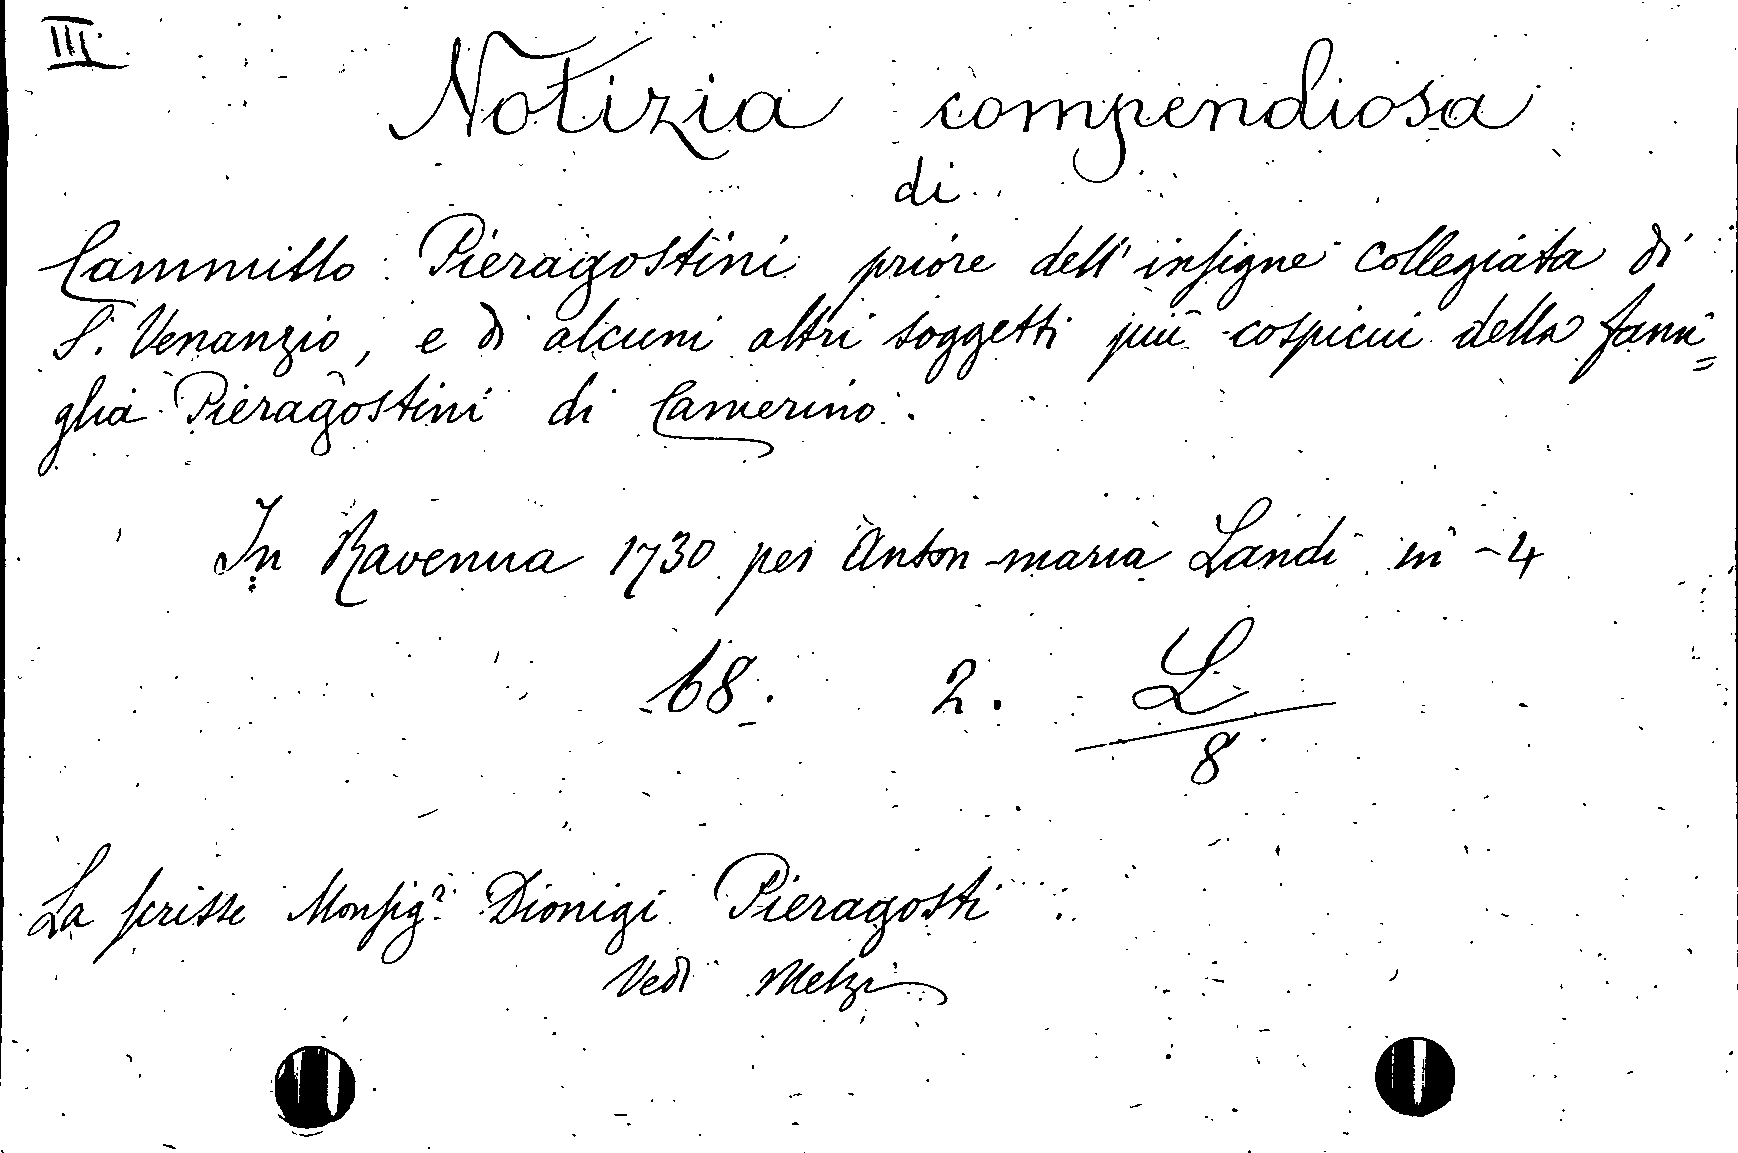 III.
Notizia compendiosa
di
Cammillo Pieragostini priore dell'insigne collegiata di
S. Venanzio, e di alcuni altri soggetti più cospicui della fami=
glia Pieragostini di Camerino.
In Ravenna 1730 per Anton-maria Landi in-4
68. 2. L
8
La scrisse Monsigr. Dionigi Pieragosti
Vedi Melzi